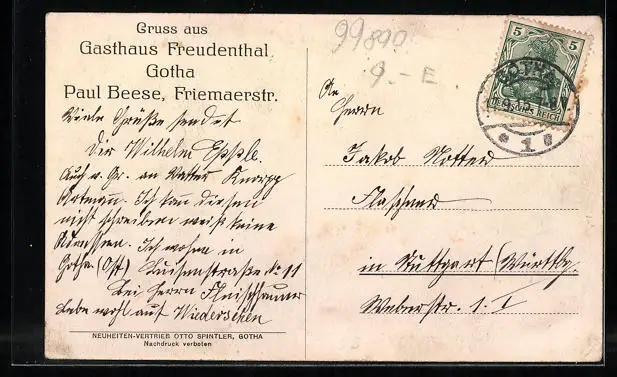 Gruss aus
Gasthaus Freudenthal
Gotha
Paul Beese, Friemaerstr.
Viele Grüße sendet
Dir Wilhelm Epple.
Auch v. Gr. an Vetter Knorpp
Artmann. Ich kan diesen
nicht schreiben weiß keine
Adressen. Ich wohne in
Gotha. (Ost) Luisenstraße No 11
bei Herrn Fleischhauer
Lebe wohl auf Wiedersehen
NEUHEITEN-VERTRIEB OTTO SPINTLER, GOTHA
Nachdruck verboten
99890
9.- E
5 5
DEUTSCHES REICH
GOTHA
* 1 *
An
Herrn
Jakob Notter
in Stuttgart (Württbg.
Weberstr. 1. I